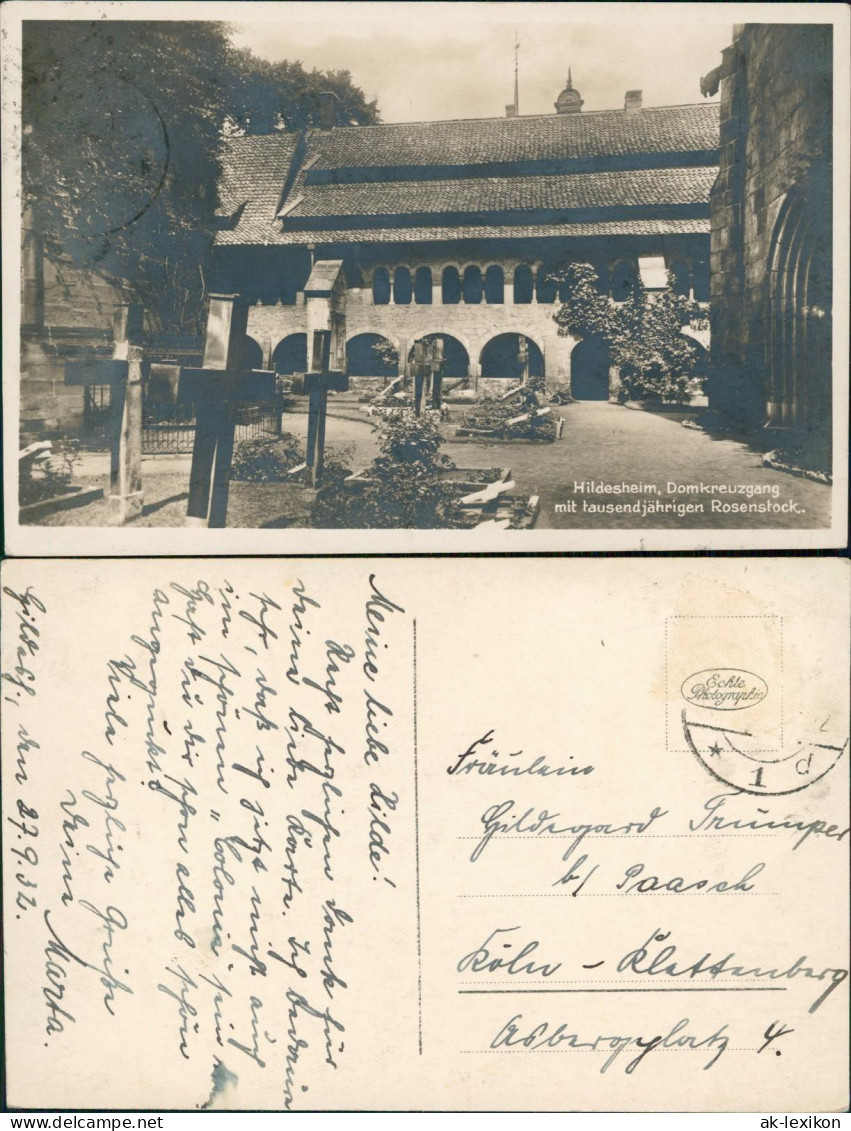 Hildesheim, Domkreuzgang
mit tausendjährigen Rosenstock.
Hildesh., den 27.9.32.
Meine liebe Hilde!
Recht herzlichen Dank für
Deine liebe Karte. Ich bedaure
sehr, daß ich jetzt nicht auch
im schönen "Colonia" sein
Hast du dir schon alles schön
angeguckt?
Viele herzliche Grüße
Deine Marta.
Echte
Photographie
* 1 d
Fräulein
Hildegard Trumper
b/ Paasch
Köln - Klettenberg
Asbergplatz 4.
ak-lexikon
© DELCAMPE.COM
ak-lexikon